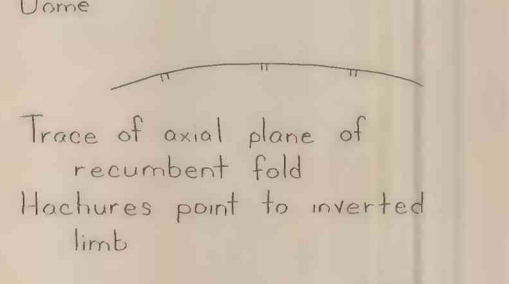 Dome
Trace of axial plane of
recumbent fold
Hachures point to inverted
limb